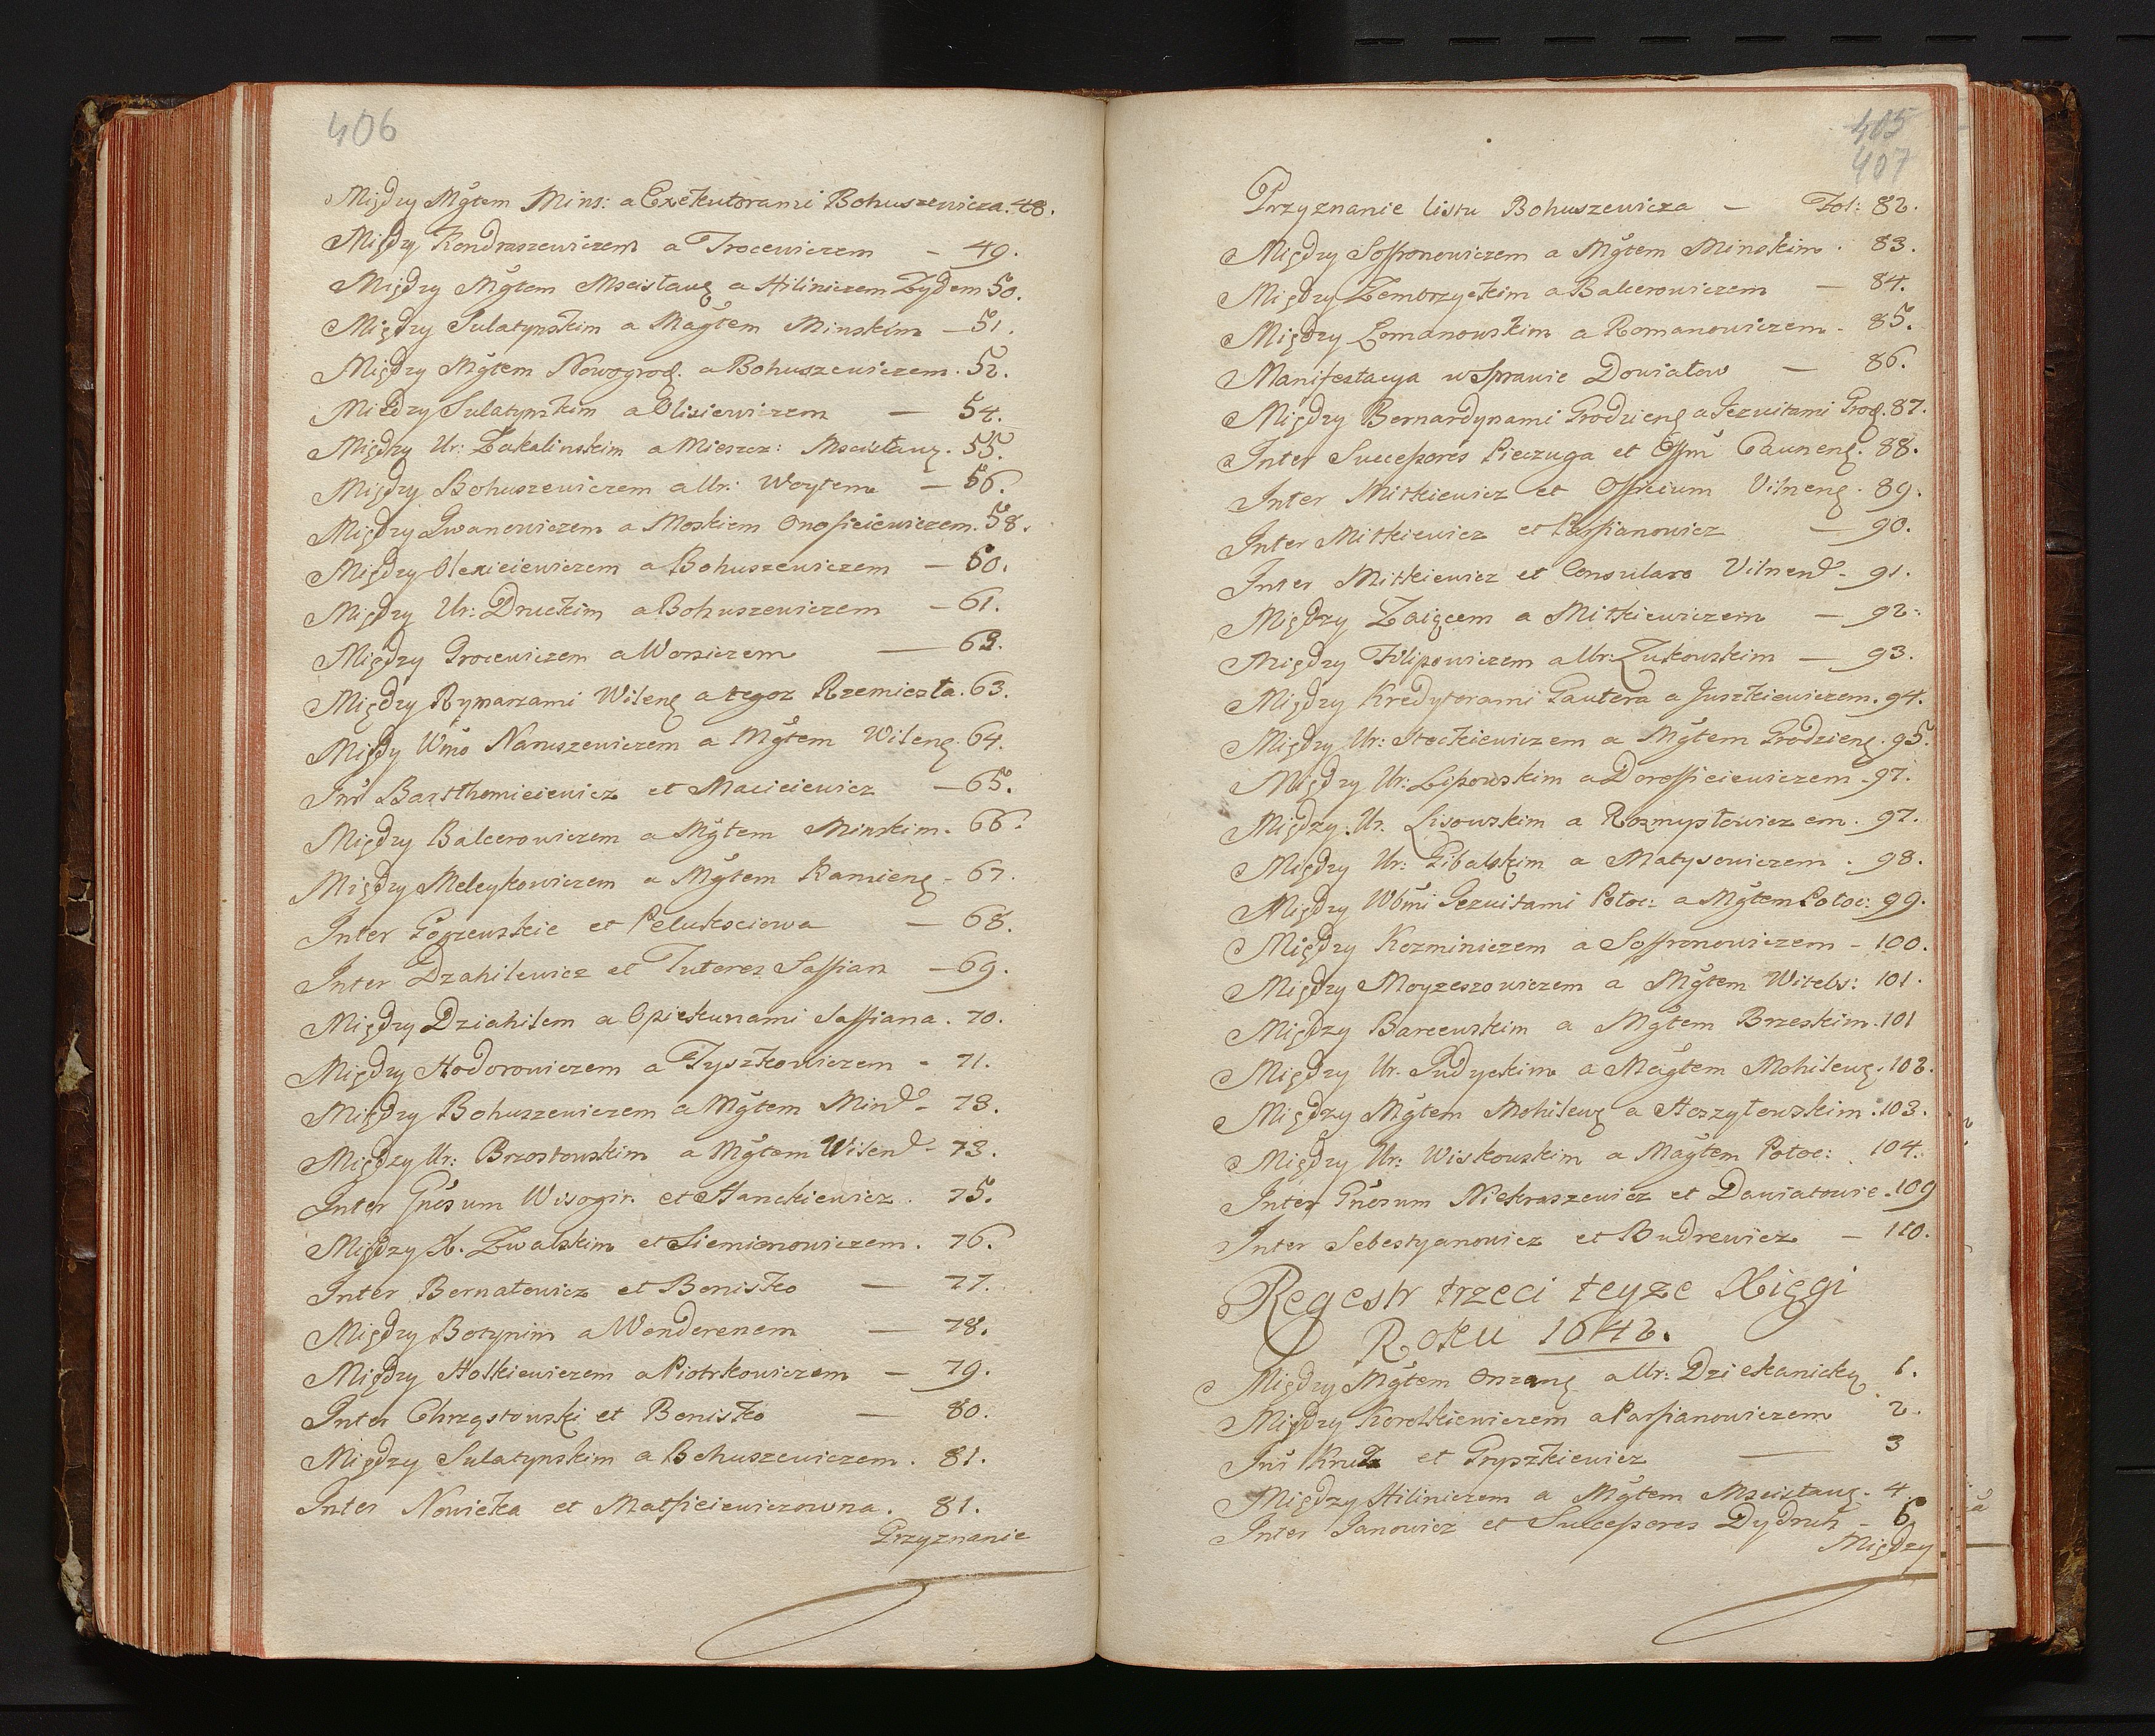 406
Między Mgtem Mins: a Exekutorami Bohuszewicza. 48.
Między Kondraszewiczem a Trocewiczem — 49.
Między Mgtem Mscisławs a Hiliniczem Zydem 50.
Między Sulatynskim a Magtem Minskim — 51.
Między Mgtem Nowogrod: a Bohuszewiczem. 52.
Miedzy Sulatynskim a Olisiewiczem — 54.
Między Ur: Zakalinskim a Mieszcz: Mscisławs. 55.
Między Bohuszewiczem a Ur: Woytem — 56.
Między Iwanowiczem a Moskiem Onofieiewiczem. 58.
Między Olexieiewiczem a Bohuszewiczem — 60.
Między Ur: Druckim a Bohuszewiczem — 61.
Między Trocewiczem a Worsiczem — 63.
Między Rymarzami Wilens a tegoz Rzemiesła. 63.
Midy Wmo Naruszewiczem a Mgtem Wilens. 64.
Int Barthomieiewicz et Macieiewicz — 65.
Między Balcerowiczem a Mgtem Minskim. 66.
Między Meleykowiczem a Mgtem Kamiens — 67.
Inter et Pelukociowa — 68.
Inter Dzahilewicz et Tutores Saffian — 69.
Między Dziahilem a Opiekunami Saffiana. 70.
Między Hodorowiczem a Tyszkowiczem — 71.
Między Bohuszewiczem a Mgtem Mins — 73.
Między Ur: Brzostowskim a Mgtem Wilens — 73.
Inter Gnosum Wisogir. et Hanckiewicz. 75.
Między X. Zwalskim et Siemionowiczem. 76.
Inter Bernatowicz et Bonisko — 77.
Między Botynim a Wenderenem — 78.
Między Holkiewiczem a Piotrkowiczem — 79.
Inter Chrzęstowski et Bonisko — 80.
Między Sulatynskim a Bohuszewiczem. 81.
Inter Nowicka et Matfieiewiczowna. 81.
Przyznanie
405
407
Przyznanie listu Bohuszewicza — Fol: 82.
Między Soffronowiczem a Mgtem Minskim. 83.
Między Zembrzyckim a Balcerowiczem — 84.
Między Łomanowskim a Romanowiczem. 85.
Manifestacya w Sprawie Dowiatow — 86.
Między Bernardynami Grodziens a Jezuitami Grod. 87.
Inter Successores Pieczuga et Caunens. 88.
Inter Mitkiewicz et Officium Vilnens. 89.
Inter Mitkiewicz et Parfianowicz — 90.
Inter Mitkiewicz et Consulare Vilnens — 91.
Między Zaięcem a Mitkiewiczem — 92.
Między Filipowiczem a Ur: Zukowskim — 93.
Między Kredytorami Gautera a Juszkiewiczem. 94.
Między Ur: Steckiewiczem a Mgtem Grodziens. 95.
Między Ur: Lipowskim a Doroffieiewiczem. 97.
Między Ur. Lisowskim a Rozmysłowiczem. 97.
Między Ur: Gibalskim a Matysowiczem. 98.
Między Jezuitami Połoc: a Mgtem Połoc: 99.
Między Kozminiczem a Soffronowiczem — 100.
Między Moyzeszowiczem a Mgtem Witebs: 101.
Między Barcewskim a Mgtem Brzeskim. 101
Między Ur. Pudyckim a Magtem Mohilews. 102.
Między Mgtem Mohilews a Hoszyłowskim. 103.
Między Ur: Wiskowskim a Magtem Połoc: 104.
Inter Gnosum Niekraszewicz et Dawiatowie. 109
Inter Sebestyanowicz et Budrewicz — 110.
Regestr trzeci teyze Xięgi
Roku 1642.
Między Mgtem a Ur: 1.
Między Korotkiewiczem a Parfianowiczem 2.
Int et Gryszkiewicz — 3
Między Hiliniczem a Mgtem Mscisławs. 4
Inter Janowicz et Successores Dydruh — 6.
Między